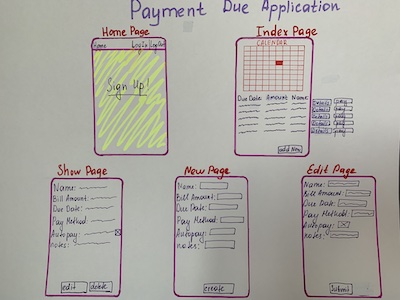 Payment Due Application
Home Page
Home
Sign Up!
Index Page
CALENDAR
Due Date Amount Name
Details
Details
Details
Details
Details
add New
Show Page
Name:
Bill Amount:
Due Date:
Pay Method:
Autopay:
notes:
edit delete
New Page
Name:
Bill Amount:
Due Date:
Pay Method:
Autopay:
notes:
create
Edit Page
Name:
Bill Amount:
Due Date:
Pay Method:
Autopay:
notes:
Submit